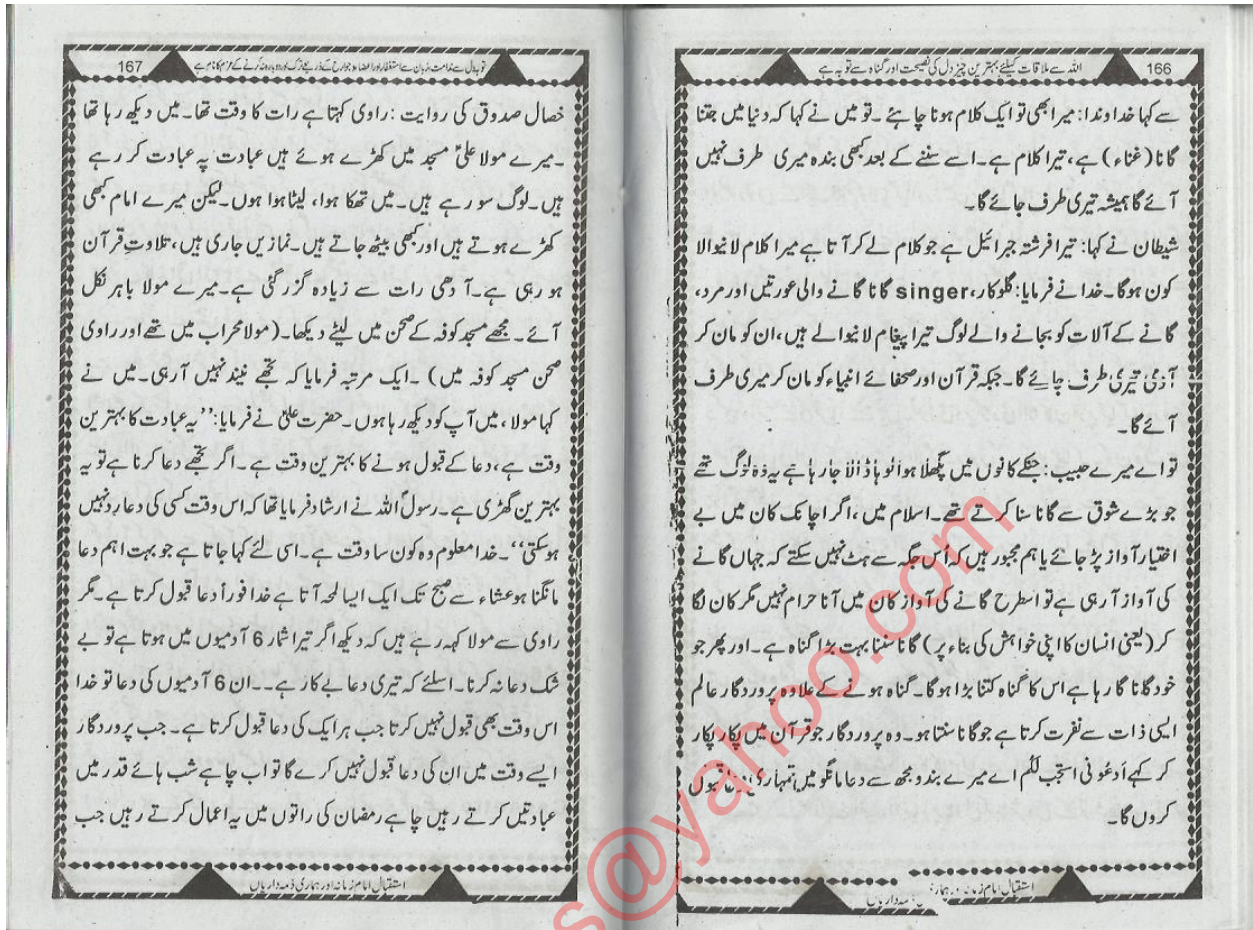 166
اللہ سے ملاقات کیلئے بہترین چیز دل کی نصیحت اور گناہ سے توبہ ہے
سے کہا خداوندا: میرا بھی تو ایک کلام ہونا چاہئے ۔ تو میں نے کہا کہ دنیا میں جتنا
گانا (غناء) ہے، تیرا کلام ہے۔ اسے سننے کے بعد کبھی بندہ میری طرف نہیں
آئے گا ہمیشہ تیری طرف جائے گا۔
شیطان نے کہا: تیرا فرشتہ جبرائیل ہے جو کلام لے کر آتا ہے میرا کلام لانیوالا
کون ہوگا۔ خدا نے فرمایا: گلوکار، singer گانا گانے والی عورتیں اور مرد،
گانے کے آلات کو بجانے والے لوگ تیرا پیغام لانیوالے ہیں، ان کو مان کر
آدمی تیری طرف جائے گا۔ جبکہ قرآن اور صحفائے انبیاء کو مان کر میری طرف
آئے گا۔
تو اے میرے حبیب: جنکے کانوں میں پگھلا ہوا لوہا ڈالا جا رہا ہے یہ وہ لوگ تھے
جو بڑے شوق سے گانا سنا کرتے تھے۔ اسلام میں، اگر اچانک کان میں بے
اختیار آواز پڑ جائے یا ہم مجبور ہیں کہ اُس جگہ سے ہٹ نہیں سکتے کہ جہاں گانے
کی آواز آ رہی ہے تو اسطرح گانے کی آواز کان میں آنا حرام نہیں مگر کان لگا
کر (یعنی انسان کا اپنی خواہش کی بناء پر) گانا سننا بہت بڑا گناہ ہے۔ اور پھر جو
خود گانا گا رہا ہے اس کا گناہ کتنا بڑا ہوگا۔ گناہ ہونے کے علاوہ پروردگار عالم
ایسی ذات سے نفرت کرتا ہے جو گانا سنتا ہو۔ وہ پروردگار جو قرآن میں پکار پکار
کر کہے اُدعُونی استجب لکُم اے میرے بندو مجھ سے دعا مانگو میں تمہاری دعا قبول
کروں گا۔
استقبال امام زمانہ اور ہماری ذمہ داریاں
167
توبہ دل سے ندامت، زبان سے استغفار اور اعضاء و جوارح کے ذریعے ترک اور دوبارہ نہ کرنے کے عزم کا نام ہے
خصال صدوق کی روایت : راوی کہتا ہے رات کا وقت تھا۔ میں دیکھ رہا تھا
۔ میرے مولا علیؑ مسجد میں کھڑے ہوئے ہیں عبادت پہ عبادت کر رہے
ہیں۔ لوگ سو رہے ہیں۔ میں تھکا ہوا، لیٹا ہوا ہوں۔ لیکن میرے امام کبھی
کھڑے ہوتے ہیں اور کبھی بیٹھ جاتے ہیں۔ نمازیں جاری ہیں، تلاوتِ قرآن
ہو رہی ہے۔ آدھی رات سے زیادہ گزر گئی ہے۔ میرے مولا باہر نکل
آئے ۔ مجھے مسجد کوفہ کے صحن میں لیٹے دیکھا۔ (مولا محراب میں تھے اور راوی
صحن مسجد کوفہ میں) ۔ ایک مرتبہ فرمایا کہ تجھے نیند نہیں آ رہی۔ میں نے
کہا مولا، میں آپ کو دیکھ رہا ہوں۔ حضرت علیؑ نے فرمایا: ’’یہ عبادت کا بہترین
وقت ہے، دعا کے قبول ہونے کا بہترین وقت ہے۔ اگر تجھے دعا کرنا ہے تو یہ
بہترین گھڑی ہے۔ رسولؐ اللہ نے ارشاد فرمایا تھا کہ اس وقت کسی کی دعا رد نہیں
ہو سکتی‘‘۔ خدا معلوم وہ کون سا وقت ہے۔ اسی لئے کہا جاتا ہے جو بہت اہم دعا
مانگنا ہو عشاء سے صبح تک ایک ایسا لمحہ آتا ہے خدا فوراً دعا قبول کرتا ہے۔ مگر
راوی سے مولا کہہ رہے ہیں کہ دیکھ اگر تیرا شمار 6 آدمیوں میں ہوتا ہے تو بے
شک دعا نہ کرنا۔ اسلئے کہ تیری دعا بے کار ہے۔۔ ان 6 آدمیوں کی دعا تو خدا
اس وقت بھی قبول نہیں کرتا جب ہر ایک کی دعا قبول کرتا ہے۔ جب پروردگار
ایسے وقت میں ان کی دعا قبول نہیں کرے گا تو اب چاہے شب ہائے قدر میں
عبادتیں کرتے رہیں چاہے رمضان کی راتوں میں یہ اعمال کرتے رہیں جب
استقبال امام زمانہ اور ہماری ذمہ داریاں
s@yahoo.com